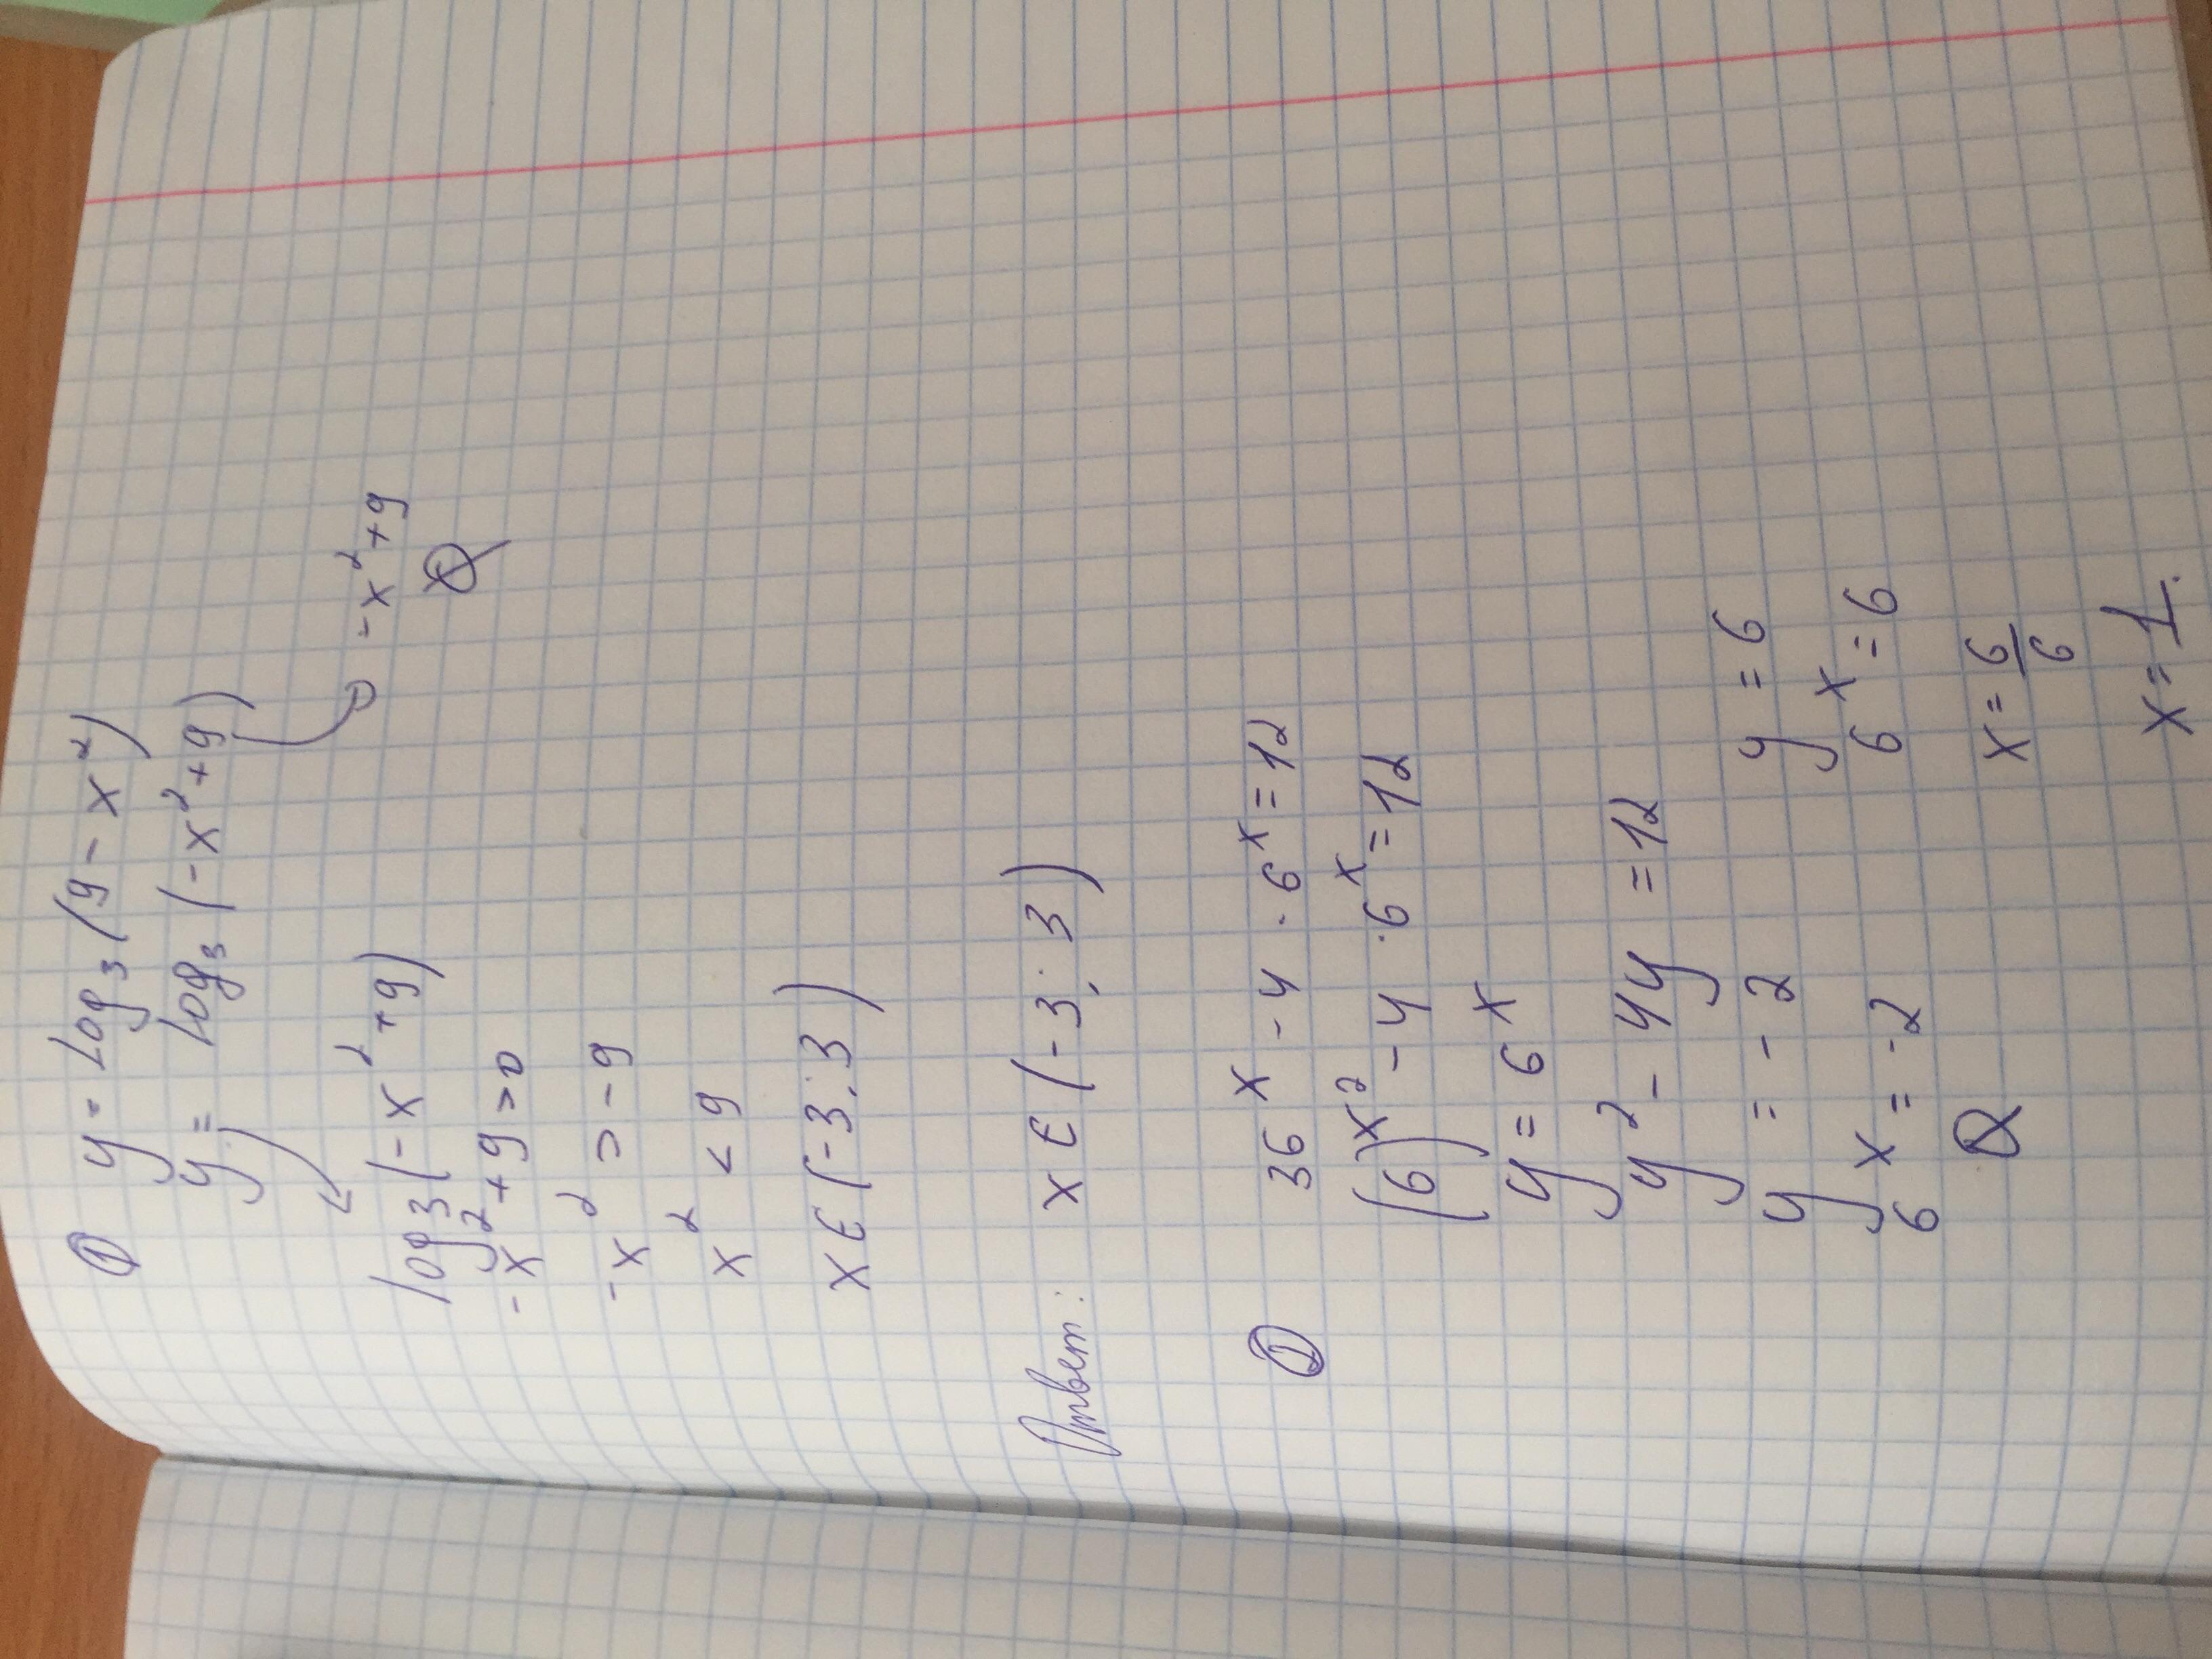 ① y = log₃(9 - x²)
y = log₃(-x² + 9)
-x² + 9
∅
log₃(-x² + 9)
-x² + 9 > 0
-x² > -9
x² < 9
x ∈ (-3; 3)
Ответ: x ∈ (-3; 3)
② 36ˣ - 4 · 6ˣ = 12
(6)ˣ² - 4 · 6ˣ = 12
y = 6ˣ
y² - 4y = 12
y = -2 y = 6
6ˣ = -2 6ˣ = 6
∅ x = 6/6
x = 1.